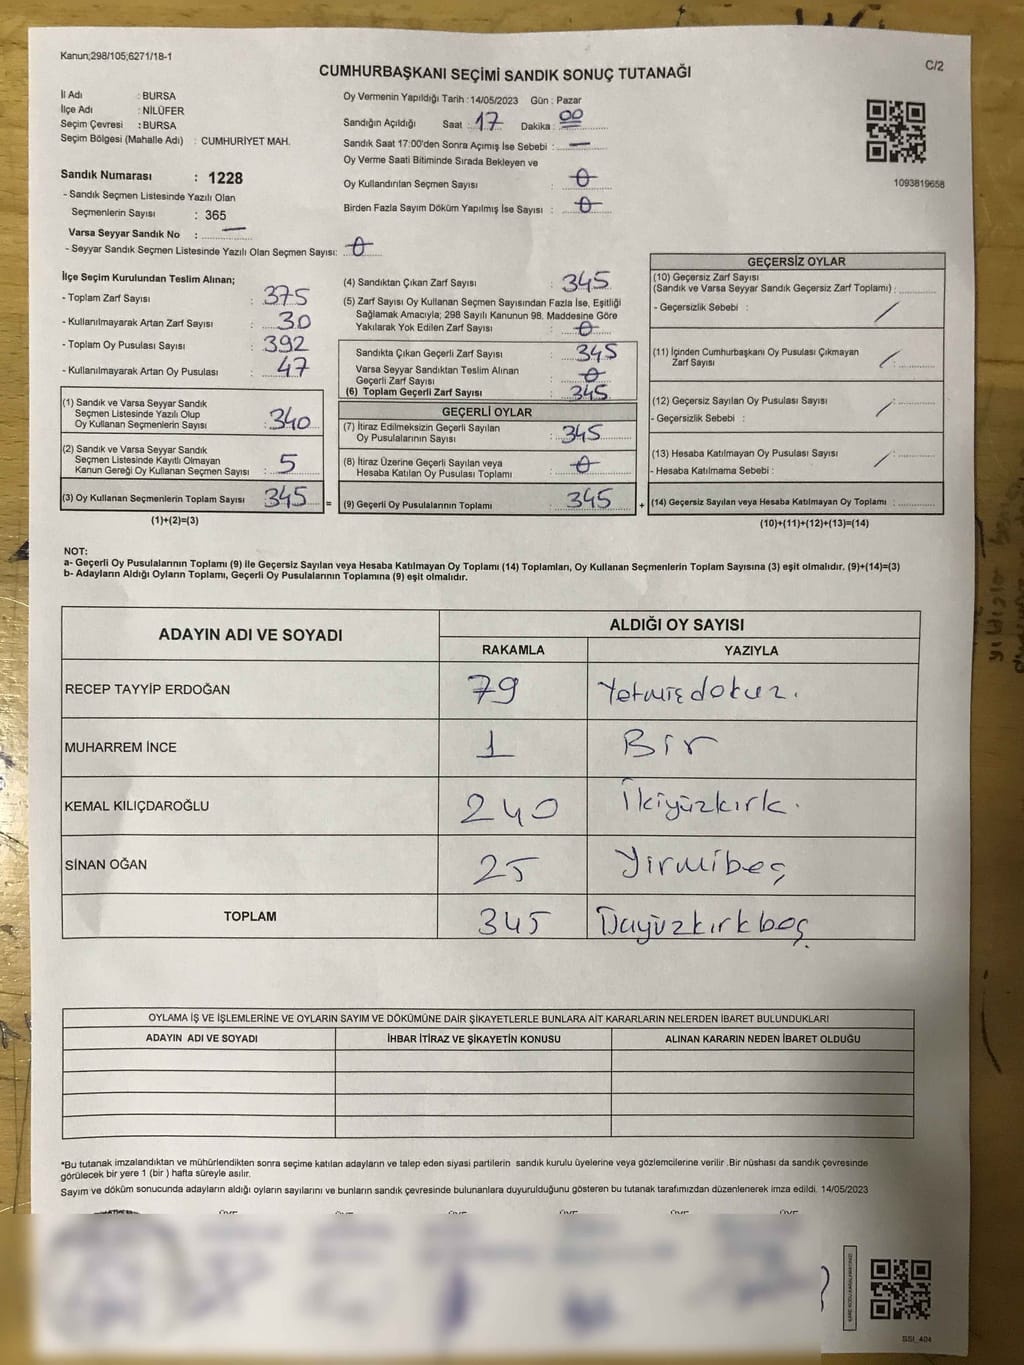 Kanun;298/105;6271/18-1
C/2
CUMHURBAŞKANI SEÇİMİ SANDIK SONUÇ TUTANAĞI
İl Adı : BURSA
İlçe Adı : NİLÜFER
Seçim Çevresi : BURSA
Seçim Bölgesi (Mahalle Adı) : CUMHURİYET MAH.
Sandık Numarası : 1228
- Sandık Seçmen Listesinde Yazılı Olan
Seçmenlerin Sayısı : 365
Varsa Seyyar Sandık No : —
- Seyyar Sandık Seçmen Listesinde Yazılı Olan Seçmen Sayısı: 0
Oy Vermenin Yapıldığı Tarih : 14/05/2023 Gün : Pazar
Sandığın Açıldığı Saat : 17 Dakika : 00
Sandık Saat 17:00'den Sonra Açımış İse Sebebi : —
Oy Verme Saati Bitiminde Sırada Bekleyen ve
Oy Kullandırılan Seçmen Sayısı : 0
Birden Fazla Sayım Döküm Yapılmış İse Sayısı : 0
1093819658
İlçe Seçim Kurulundan Teslim Alınan;
- Toplam Zarf Sayısı : 375
- Kullanılmayarak Artan Zarf Sayısı : 30
- Toplam Oy Pusulası Sayısı : 392
- Kullanılmayarak Artan Oy Pusulası : 47
(1) Sandık ve Varsa Seyyar Sandık
Seçmen Listesinde Yazılı Olup
Oy Kullanan Seçmenlerin Sayısı : 340
(2) Sandık ve Varsa Seyyar Sandık
Seçmen Listesinde Kayıtlı Olmayan
Kanun Gereği Oy Kullanan Seçmen Sayısı : 5
(3) Oy Kullanan Seçmenlerin Toplam Sayısı 345 =
(1)+(2)=(3)
(4) Sandıktan Çıkan Zarf Sayısı : 345
(5) Zarf Sayısı Oy Kullanan Seçmen Sayısından Fazla İse, Eşitliği
Sağlamak Amacıyla; 298 Sayılı Kanunun 98. Maddesine Göre
Yakılarak Yok Edilen Zarf Sayısı : 0
Sandıkta Çıkan Geçerli Zarf Sayısı : 345
Varsa Seyyar Sandıktan Teslim Alınan
Geçerli Zarf Sayısı : 0
(6) Toplam Geçerli Zarf Sayısı : 345
GEÇERLİ OYLAR
(7) İtiraz Edilmeksizin Geçerli Sayılan
Oy Pusulalarının Sayısı : 345
(8) İtiraz Üzerine Geçerli Sayılan veya
Hesaba Katılan Oy Pusulası Toplamı : 0
(9) Geçerli Oy Pusulalarının Toplamı : 345 +
GEÇERSİZ OYLAR
(10) Geçersiz Zarf Sayısı
(Sandık ve Varsa Seyyar Sandık Geçersiz Zarf Toplamı) :
- Geçersizlik Sebebi : /
(11) İçinden Cumhurbaşkanı Oy Pusulası Çıkmayan
Zarf Sayısı : /
(12) Geçersiz Sayılan Oy Pusulası Sayısı :
- Geçersizlik Sebebi : /
(13) Hesaba Katılmayan Oy Pusulası Sayısı :
- Hesaba Katılmama Sebebi : /
(14) Geçersiz Sayılan veya Hesaba Katılmayan Oy Toplamı :
(10)+(11)+(12)+(13)=(14)
NOT:
a- Geçerli Oy Pusulalarının Toplamı (9) ile Geçersiz Sayılan veya Hesaba Katılmayan Oy Toplamı (14) Toplamları, Oy Kullanan Seçmenlerin Toplam Sayısına (3) eşit olmalıdır. (9)+(14)=(3)
b- Adayların Aldığı Oyların Toplamı, Geçerli Oy Pusulalarının Toplamına (9) eşit olmalıdır.
ADAYIN ADI VE SOYADI
ALDIĞI OY SAYISI
RAKAMLA YAZIYLA
RECEP TAYYİP ERDOĞAN 79 Yetmiş dokuz.
MUHARREM İNCE 1 Bir
KEMAL KILIÇDAROĞLU 240 İkiyüzkırk.
SİNAN OĞAN 25 Yirmibeş
TOPLAM 345 Üçyüzkırkbeş
OYLAMA İŞ VE İŞLEMLERİNE VE OYLARIN SAYIM VE DÖKÜMÜNE DAİR ŞİKAYETLERLE BUNLARA AİT KARARLARIN NELERDEN İBARET BULUNDUKLARI
ADAYIN ADI VE SOYADI İHBAR İTİRAZ VE ŞİKAYETİN KONUSU ALINAN KARARIN NEDEN İBARET OLDUĞU
*Bu tutanak imzalandıktan ve mühürlendikten sonra seçime katılan adayların ve talep eden siyasi partilerin sandık kurulu üyelerine veya gözlemcilerine verilir .Bir nüshası da sandık çevresinde
görülecek bir yere 1 (bir ) hafta süreyle asılır.
Sayım ve döküm sonucunda adayların aldığı oyların sayılarını ve bunların sandık çevresinde bulunanlara duyurulduğunu gösteren bu tutanak tarafımızdan düzenlenerek imza edildi. 14/05/2023
SSI_404